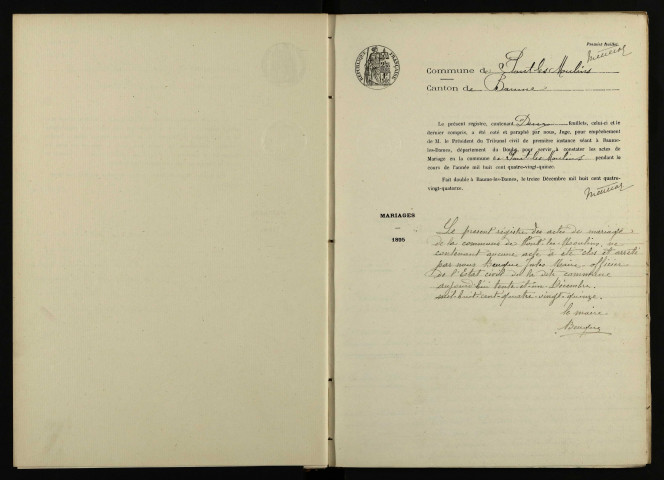 Premier Feuillet
RÉPUBLIQUE FRANÇAISE
Commune de Pont-les-Moulins
Canton de Baume
Le présent registre, contenant Deux feuillets, celui-ci et le
dernier compris, a été coté et paraphé par nous, Juge, pour empêchement
de M. le Président du Tribunal civil de première instance séant à Baume-
les-Dames, département du Doubs, pour servir à constater les actes de
Mariage en la commune de Pont-les-Moulins pendant le
cours de l'année mil huit cent quatre-vingt-quinze.
Fait double à Baume-les-Dames, le treize Décembre mil huit cent quatre-
vingt-quatorze.
MARIAGES
1895
Le présent registre des actes de mariage
de la commune de Pont-les-Moulins, ne
contenant aucun acte a été clos et arrêté
par nous Jules Maire officier
de l'Etat civil de la dite commune
aujourd'hui trente et un Décembre
mil huit cent quatre vingt quinze.
le maire